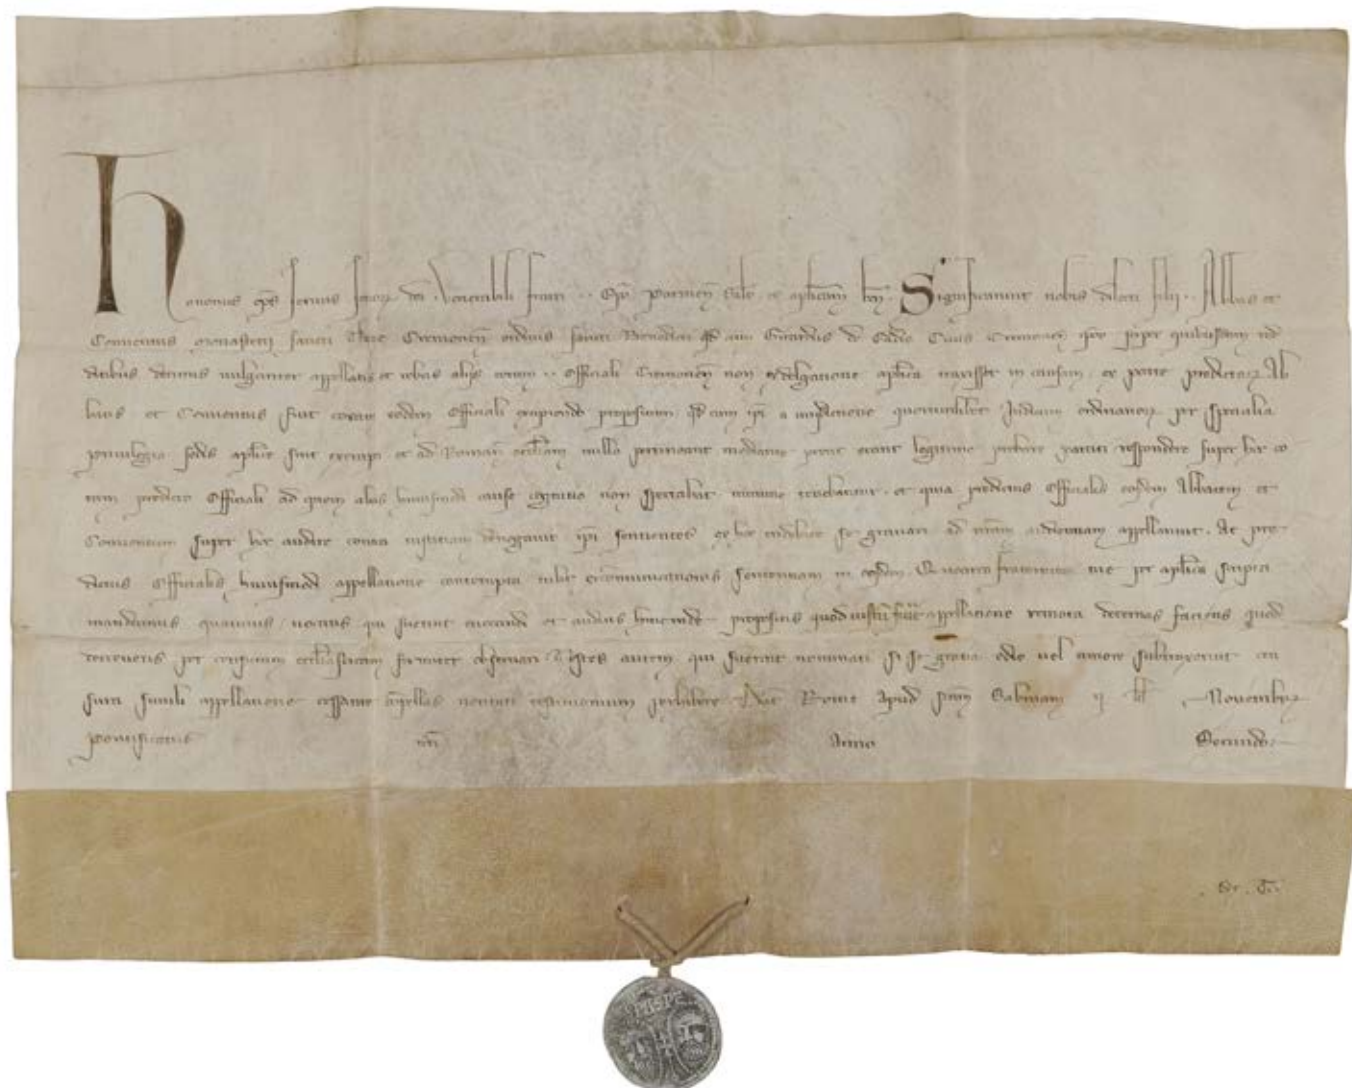 honorius eps servus servor dei Venerabili fratri . . Epo Parmen Salt et aplicam ben. Significarunt nobis dilecti filii . . Abbas et
Conventus Monasterii sancti Cremonen ordinis sancti Benedicti qd cum Girardus de Civis Cremonen ipos super quibusdam red
ditibus decimis vulgariter appellatis et rebus aliis coram . . Officiali Cremonen non ex delegatione aplica traxisset in causam, ex parte predictor Ab
batis et Conventus fuit coram eodem Officiali excipiendo propositum qd cum ipi a iurisdictione quorumlibet Iudicum ordinarior per specialia
privilegia sedis aplice sint exempti et ad Romanam ecclam nullo pertineant mediante prout erant legitime probare parati respondere super hiis co
ram predicto Officiali ad quem alias huiusmodi cause cognitio non spectabat minime tenebantur. et quia predictus Officialis eosdem Abbatem et
Conventum super hoc audire contra iustitiam denegavit ipi sentientes ex hoc indebite se gravari ad nram audientiam appellarunt. At pre
dictus Officialis huiusmodi appellatione contempta tulit excommunicationis sententiam in eosdem. Quocirca fraternitati tue per aplica scripta
mandamus quatinus vocatis qui fuerint evocandi et auditis hincinde propositis quod iustum fuerit appellatione remota decernas faciens quod
decreveris per censuram ecclesiasticam firmiter observari Testes autem qui fuerint nominati si se gratia odio vel timore subtraxerint cen
sura simili appellatione cessante compellas veritati testimonium perhibere. Dat Rome apud scam Sabinam ii kl Novembr
Pontificatus nri Anno Secundo